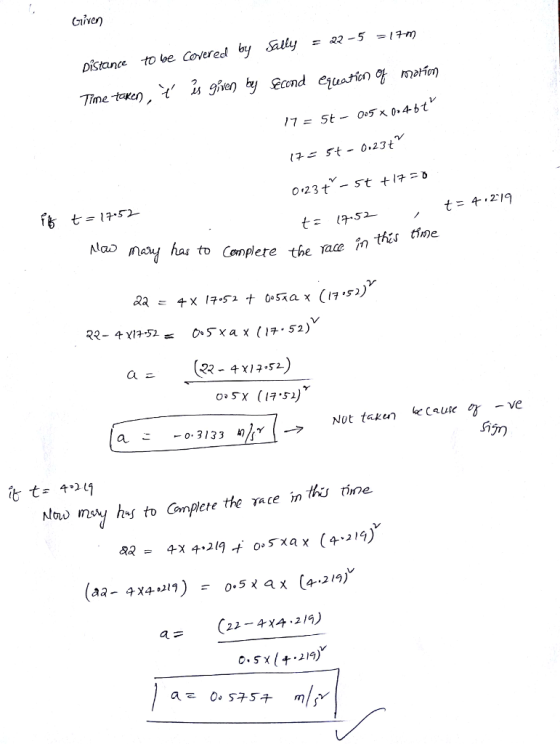 Given
Distance to be covered by Sally = 22-5 = 17m
Time taken, 't' is given by second equation of motion
17 = 5t - 0.5 x 0.46t²
17 = 5t - 0.23t²
0.23t² - 5t + 17 = 0
t = 17.52 , t = 4.219
if t = 17.52
Now mary has to complete the race in this time
22 = 4 x 17.52 + 0.5xa x (17.52)²
22 - 4x17.52 = 0.5 x a x (17.52)²
a = (22 - 4x17.52) / 0.5x (17.52)²
a = -0.3133 m/s² → Not taken because of -ve sign
if t = 4.219
Now mary has to complete the race in this time
22 = 4x 4.219 + 0.5 xa x (4.219)²
(22 - 4x4.219) = 0.5 x a x (4.219)²
a = (22 - 4x4.219) / 0.5x(4.219)²
a = 0.5757 m/s²